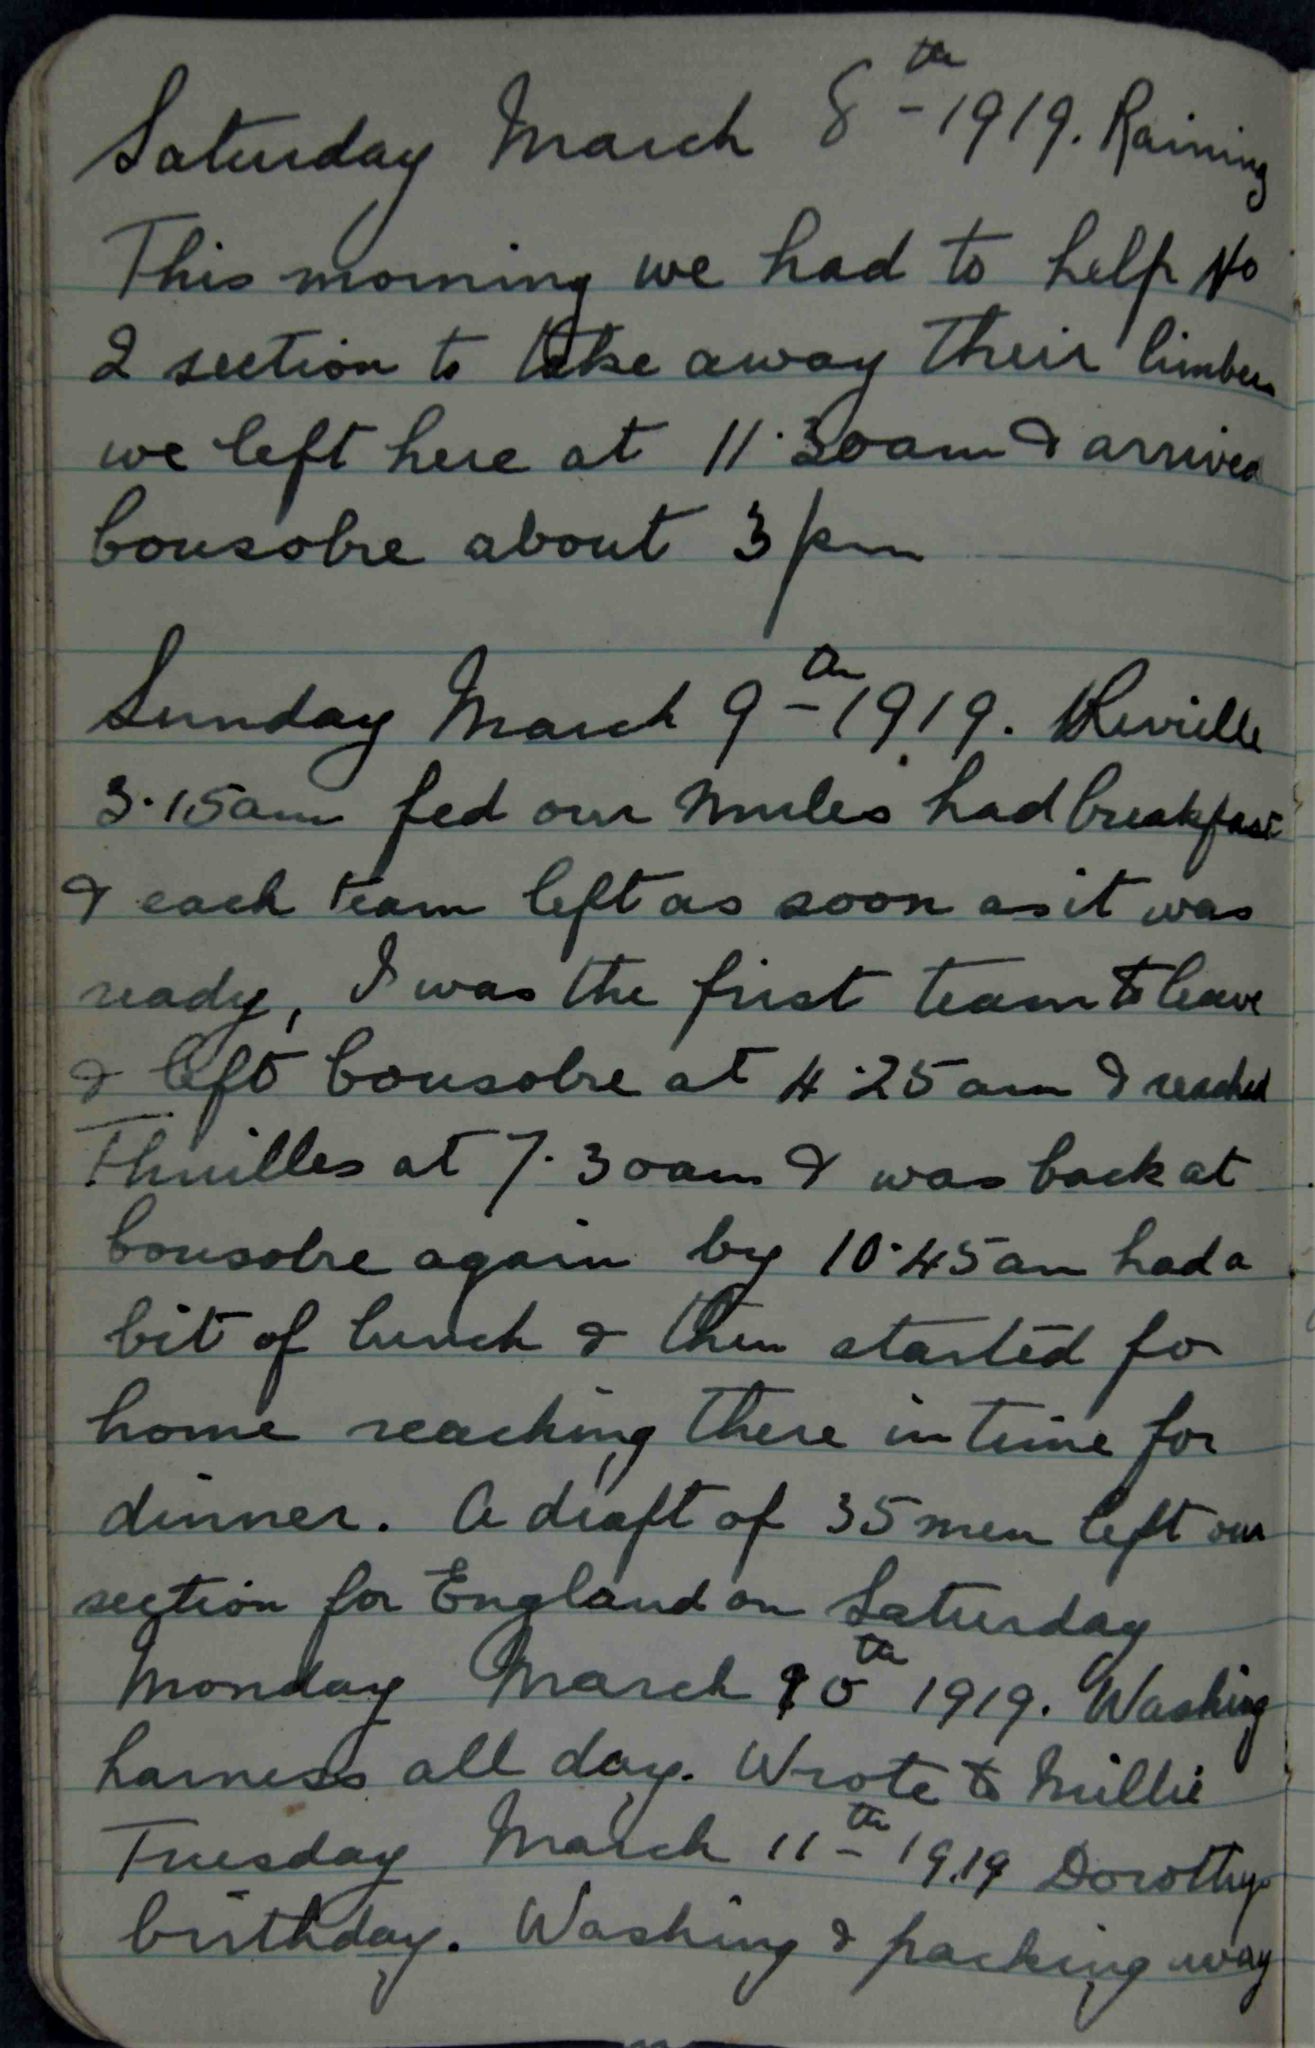 Saturday March 8th 1919. Raining
This morning we had to help No
2 section to take away their limbers
we left here at 11.30am & arrived
bousolre about 3pm
Sunday March 9th 1919. Reville
3.15am fed our mules had breakfast
& each team left as soon as it was
ready, I was the first team to leave
& left bousolre at 4.25am & reached
Thuilles at 7.30am & was back at
bousolre again by 10.45am had a
bit of lunch & then started for
home reaching there in time for
dinner. A draft of 35 men left our
section for England on Saturday
Monday March 10th 1919. Washing
harness all day. Wrote to Millie
Tuesday March 11th 1919 Dorothys
birthday. Washing & packing away